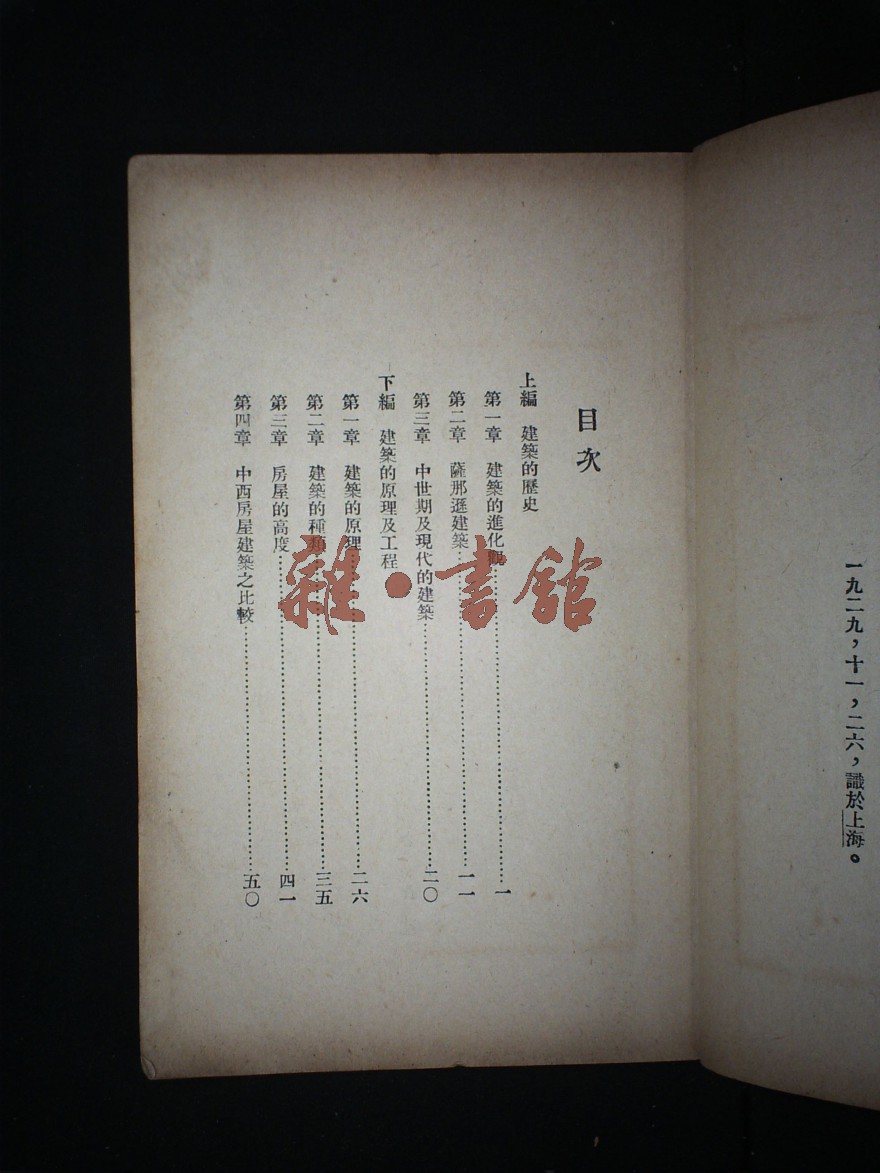 一九二九，十一，二六，識於上海。
目次
上編　建築的歷史
第一章　建築的進化觀……一
第二章　薩那遜建築……一一
第三章　中世期及現代的建築……二〇
下編　建築的原理及工程
第一章　建築的原理……二六
第二章　建築的種類……三五
第三章　房屋的高度……四一
第四章　中西房屋建築之比較……五〇
雜·書館